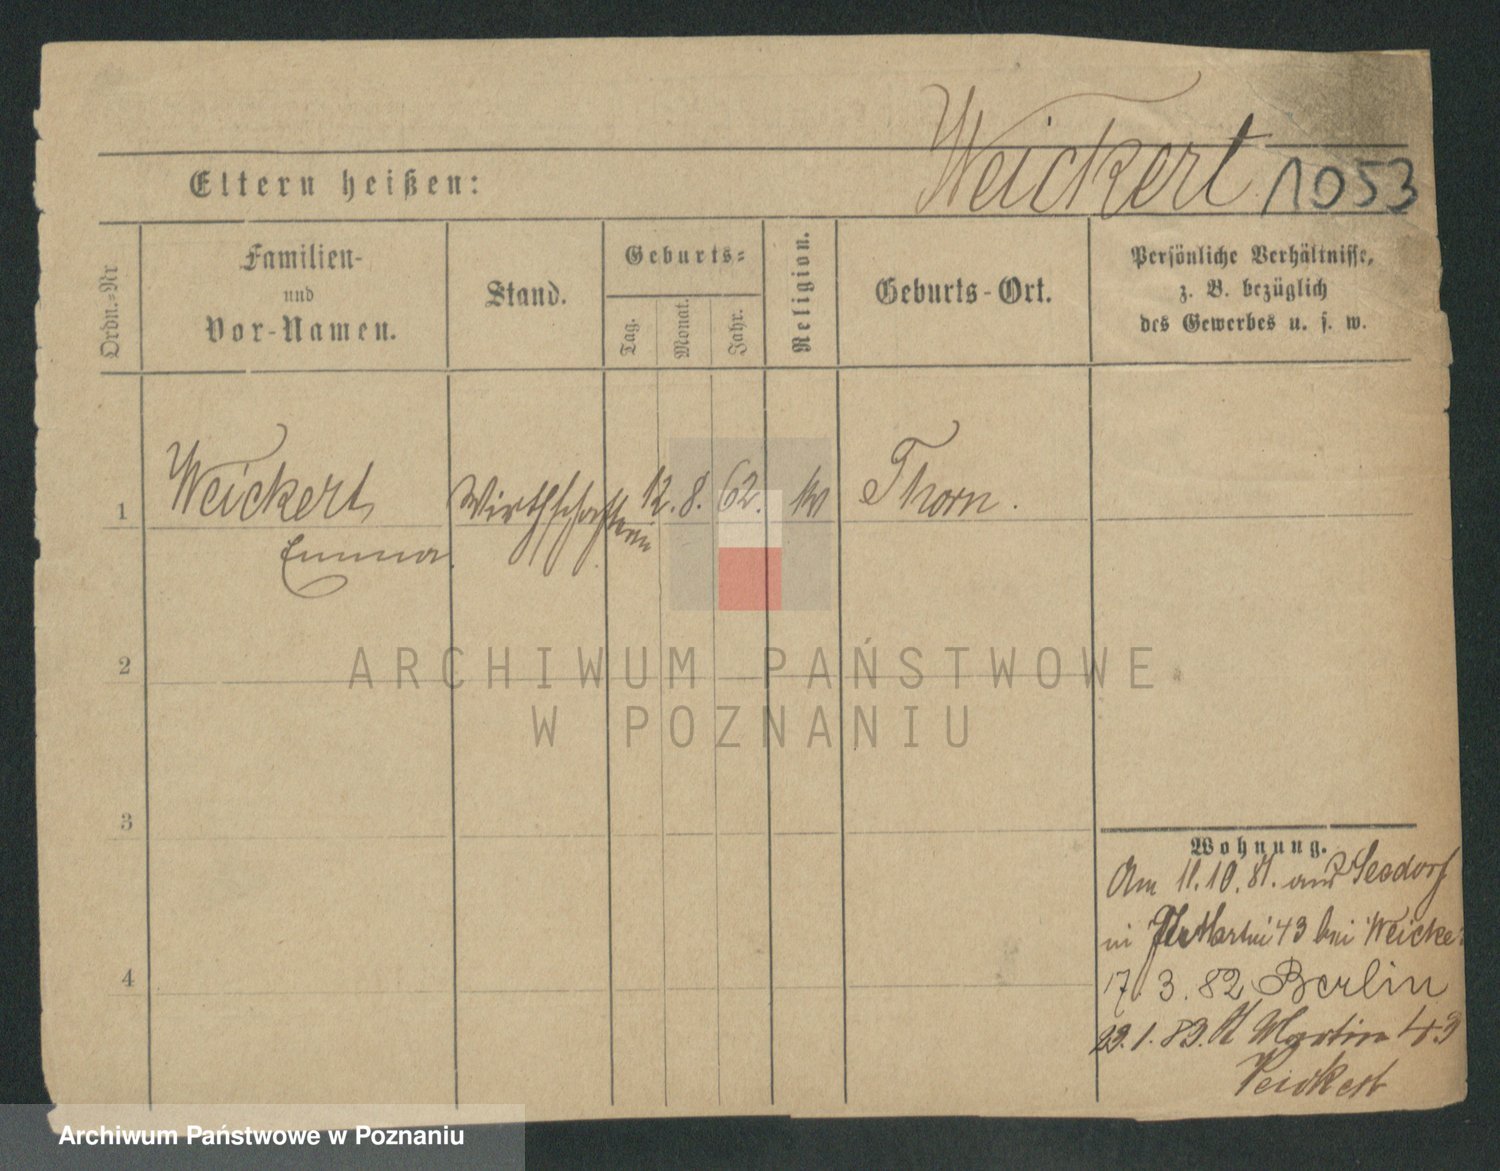 Weickert 1053
Eltern heißen:
Ordn.=Nr
Familien-
und
Vor-Namen.
Stand.
Geburts=
Tag.
Monat.
Jahr.
Religion.
Geburts-Ort.
Persönliche Verhältnisse,
z. B. bezüglich
des Gewerbes u. s. w.
1 Weickert Wirthschafterin 12. 8. 62. Thorn.
Emma
2
3
4
ARCHIWUM PAŃSTWOWE
W POZNANIU
Wohnung.
Am 11.10.81. aus Seedorf
in Martin 43 bei Weicker
17. 3. 82 Berlin
23. 1. 83. St Martin 43
Weickert
Archiwum Państwowe w Poznaniu